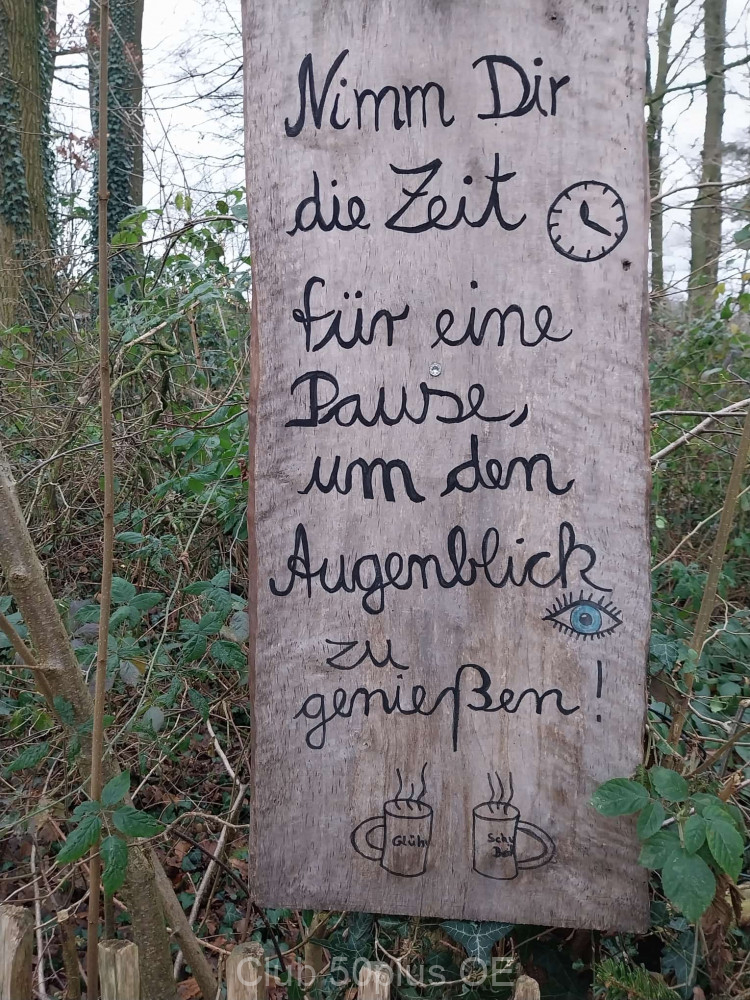 Nimm Dir
die Zeit
für eine
Pause,
um den
Augenblick
zu
genießen!
Glüh
Club 50plus OE